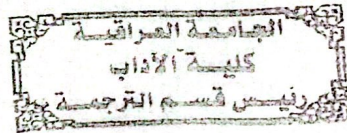 الجامعة العراقية
كلية الآداب
رئيس قسم الترجمة